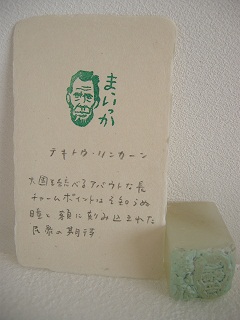 まいっか
テキトウ・リンカーン
大国をたべるアバウトな長
チャームポイントは
瞳と頬に刻み込まれた
民衆の期待